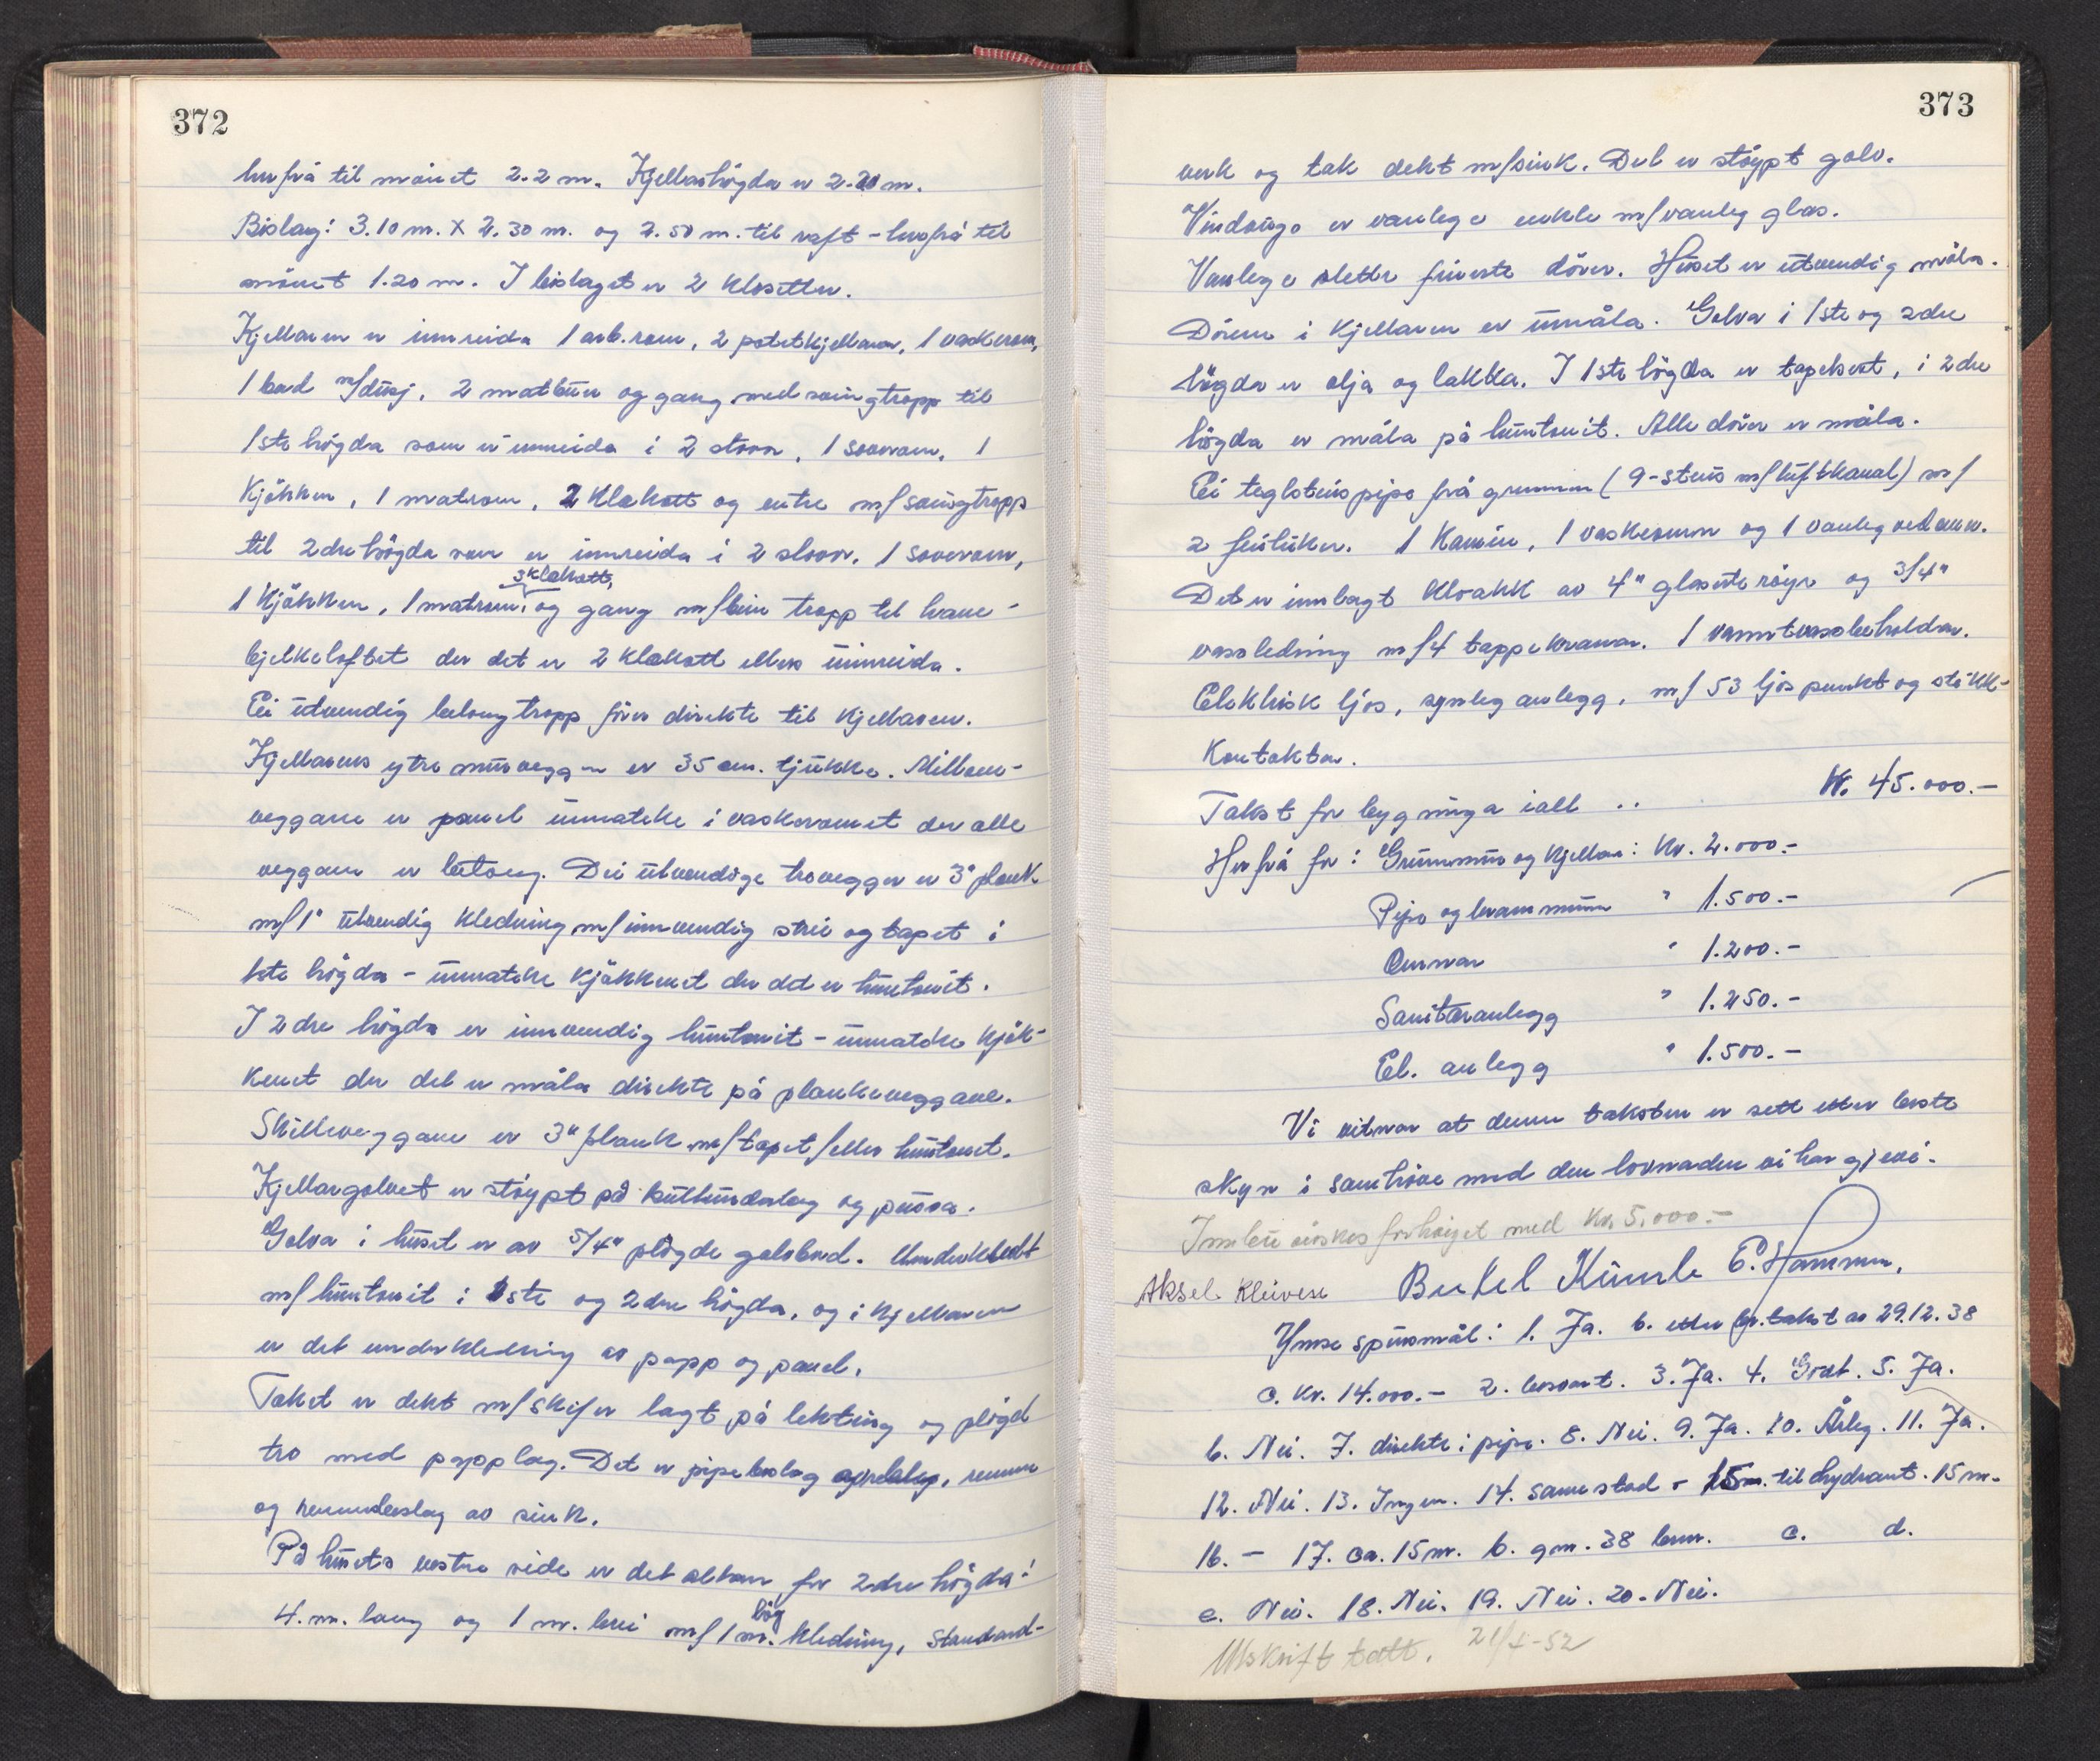 372
herfrå til mönet 2.2 m. Kjellarhögda er 2.20 m.
Bislag: 3.10 m. x 2.30 m. og 2.50 m. til raft - herfrå til
mönet 1.20 m. I bislaget er 2 klosetter.
Kjellaren er innreida 1 arb.rom, 2 potetkjellarar, 1 vaskerom,
1 bad m/dusj, 2 matbuer og gang med svingtropp til
1ste högda som er innreida i 2 stovor, 1 soverom, 1
kjökken, 1 matrom, 2 klekott og entre m/svingtropp
til 2dre högda som er innreida i 2 stovor, 1 soverom,
3 klekott,
1 kjökken, 1 matrom, og gang m/bein tropp til hane-
bjelkeloftet der det er 2 klekott ellers uinnreida.
Ei utvendig betong tropp förer direkte til kjellaren.
Kjellarens ytre murveggar er 35 cm. tjukke. Millom-
veggane er panel unnateke i vaskeromet der alle
veggane er betong. Dei utvendige trevegger er 3" plank
m/1" utvendig kledning m/innvendig strie og tapet i
1ste högda - unnateke kjökkenet der det er huntonit.
I 2dre högda er innvendig huntonit - unnateke kjök-
kenet der det er måla direkte på plankeveggane.
Skilleveggane er 3" plank m/tapet/eller huntonit.
Kjellargolvet er stöypt på kultunderlag og pussa.
Golva i huset er av 5/4" plögde golvbord. Underkledt
m/huntonit i 1ste og 2dre högda, og i kjellaren
er det underkledning av papp og panel.
Taket er dekt m/skifer lagt på lekting og plögd
tro med papplag. Det er pipebeslag, renner
og rennebeslag av sink.
På husets vestre side er det altan for 2dre högda:
4. m. lang og 1 m. brei m/1 m. hög kledning, standard-
373
verk og tak dekt m/sink. Det er stöypt golv.
Vindauga er vanlege enkle m/vanleg glas.
Vanlege slette finerte dörer. Huset er utvendig måla.
Dörene i kjellaren er umåla. Golva i 1ste og 2dre
högda er olja og lakka. I 1ste högda er tapetsert, i 2dre
högda er måla på huntonit. Alle dörer er måla.
Ei teglsteinspipe frå grunnen (9-steins m/luftkanal) m/
2 feieluker. 1 Kamin, 1 vaskeomn og 1 vanleg vedomn.
Det er innlagt kloakk av 4" glaserte röyr og 3/4"
vassledning m/4 tappekranar. 1 varmtvassbeholdar.
Elektrisk ljos, synleg anlegg, m/53 ljospunkt og stikk-
kontaktar.
Takst for bygninga ialt .. Kr. 45.000.-
Herfrå for: Grunnmur og kjellar: Kr. 2.000.-
Pipe og brannmurar " 1.500.-
Omnar " 1.200.-
Sanitæranlegg " 1.250.-
El. anlegg " 1.500.-
Vi vitnar at denne taksten er sett etter beste
skyn i samhöve med den lovnaden vi har gjeve.
Innbu önskes forhöiget med kr. 5.000.-
Aksel Kleiven Bertel Kumle E. Hammer.
Ymse spursmål: 1. Ja. b. etter br.takst av 29.12.38
c. kr. 14.000.- 2. bevart. 3. Ja. 4. Godt. 5. Ja.
6. Nei. 7. direkte i pipe. 8. Nei. 9. Ja. 10. Årleg. 11. Ja.
12. Nei. 13. Ingen. 14. same stad - 15 m. til hydrant. 15 m.
16. - 17. ca. 15 m. b. gm. 38 c. d.
e. Nei. 18. Nei. 19. Nei. 20. Nei.
Utskrift tatt. 21/5-52